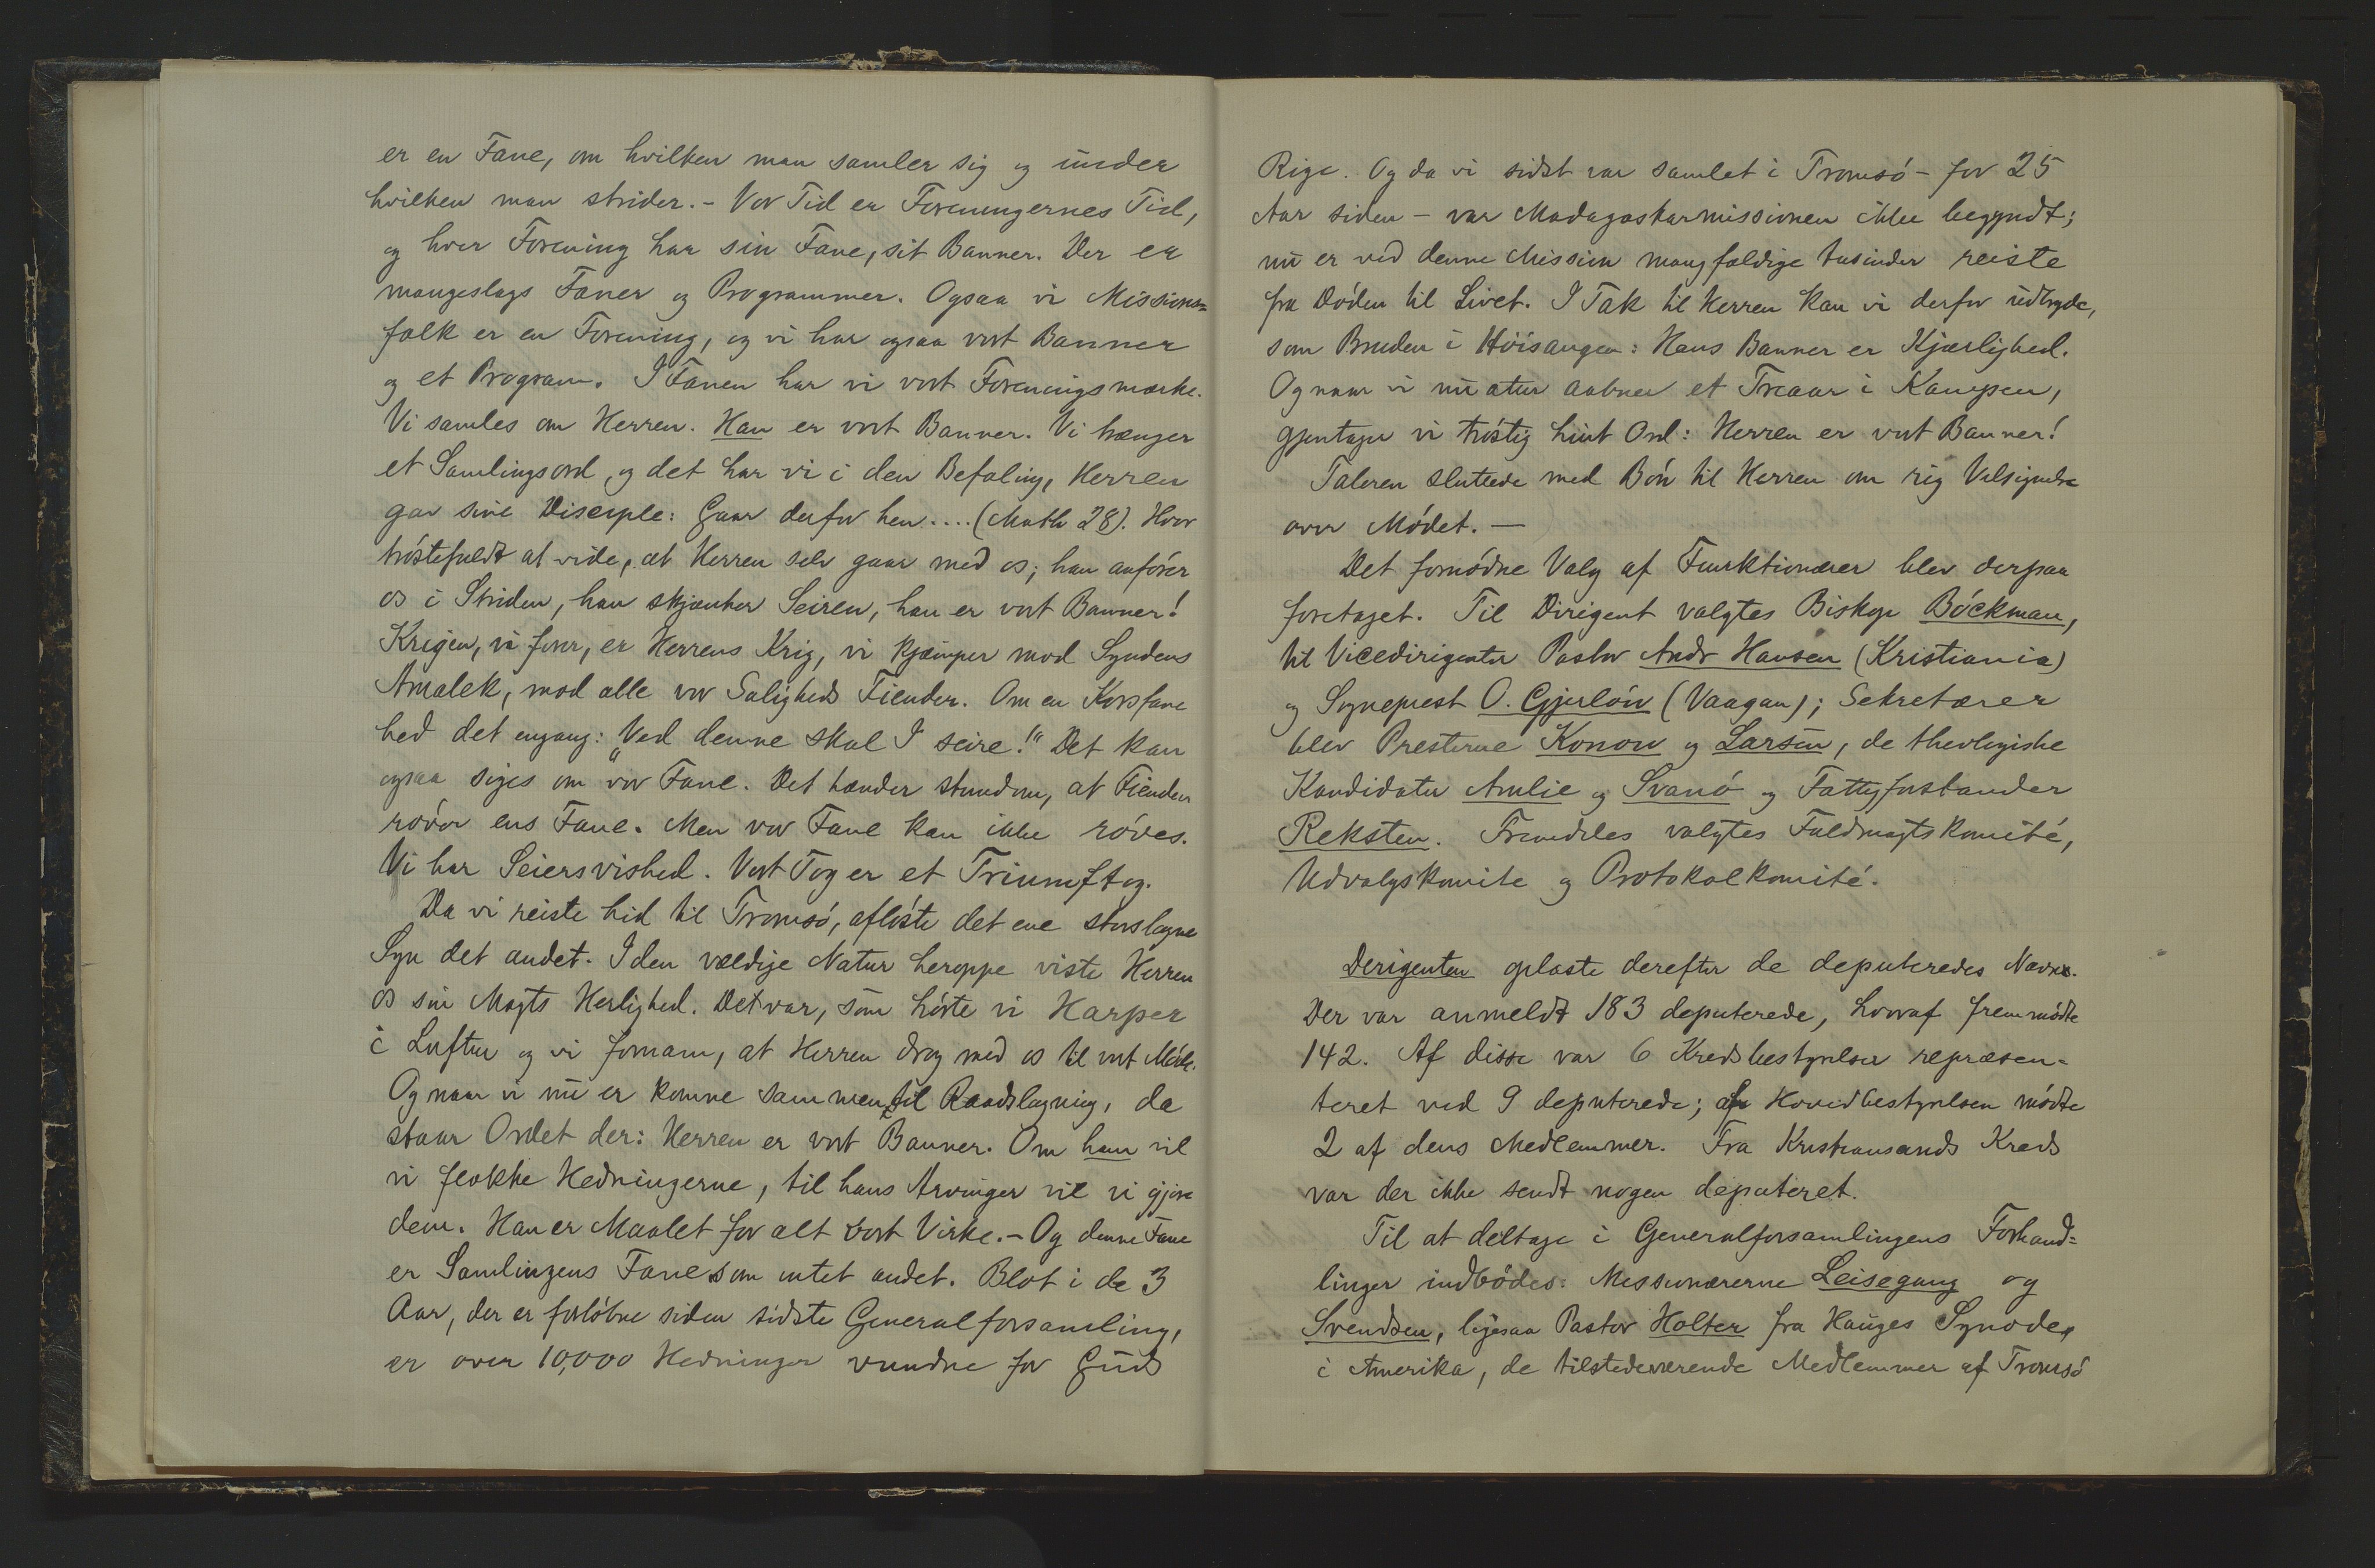 er en Fane, om hvilken man samler sig og under
hvilken man strider. - Vor Tid er Foreningernes Tid,
og hver Forening har sin Fane, sit Banner. Der er
mangeslags Faner og Programmer. Ogsaa vi Missions=
folk er en Forening, og vi har ogsaa vort Banner
og et Program. I Fanen har vi vort Foreningsmærke.
Vi samles om Herren. Han er vort Banner. Vi trænger
et Samlingsord, og det har vi i den Befaling, Herren
gav sine Disciple: Gaar derfor hen .... (Math 28). Hvor
tróstefuldt at vide, at Herren selv gaar med os; han anfórer
os i Striden, han skjænker Seiren, han er vort Banner!
Krigen, vi fører, er Herrens Krig, vi kjæmper mod Syndens
Amalek, mod alle vor Saligheds Fiender. Om en Korsfane
hed det engang: "Ved denne skal I seire!" Det kan
ogsaa siges om vor Fane. Det hænder stundom, at Fienden
róver ens Fane. Men vor Fane kan ikke róves.
Vi har Seiersvished. Vort Tog er et Triumftog.
Da vi reiste hid til Tromsó, aflóste det ene storslagne
Syn det andet. I den vældige Natur heroppe viste Herren
os sin Magts Herlighed. Det var, som hórte vi Harper
i Luften og vi fornam, at Herren drog med os til vort Móde.
Og naar vi nu er komne sammen til Raadslagning, da
staar Ordet der: Herren er vort Banner. Om ham vil
vi flokke Hedningerne, til hans Arvinger vil vi gjøre
dem. Han er Maalet for alt vort Virke. - Og denne Fane
er Samlingens Fane som intet andet. Blot i de 3
Aar, der er forlóbne siden sidste Generalforsamling,
er over 10,000 Hedninger vundne for Guds
Rige. Og da vi sidst var samlet i Tromsó - for 25
Aar siden - var Madagaskarmissionen ikke begyndt;
nu er ved denne Mission mangfoldige tusinder reiste
fra Dóden til Livet. I Tak til Herren kan vi derfor udbryde,
som Bruden i Hóisangen: Hans Banner er Kjærlighed.
Og naar vi nu atter aabner et Treaar i Kampen,
gjentager vi tróstig hint Ord: Herren er vort Banner!
Taleren sluttede med Bón til Herren om rig Velsignelse
over Módet. -
Det fornódne Valg af Funktionærer blev derpaa
foretaget. Til Dirigent valgtes Biskop Bóckman,
til Vicedirigenter Pastor Andr Hansen (Kristiania)
og Sognepræst O. Gjerlów (Vaagan); Sekretærer
blev Presterne Konow og Larsen, de theologiske
Kandidater Amlie og Svanó og Fattigforstander
Reksten. Fremdeles valgtes Fuldmagtskomité,
Udvalgskomite og Protokolkomité.
Derigenten oplæste derefter de deputeredes Navne.
Der var anmeldt 183 deputerede, hvoraf fremmódte
142. Af disse var 6 Kredsbestyrelser repræsen=
teret ved 9 deputerede; af Hovedbestyrelsen módte
2 af dens Medlemmer. Fra Kristiansands Kreds
var der ikke sendt nogen deputeret.
Til at deltage i Generalforsamlingens Forhand=
linger indbódes: Missionærerne Leisegang og
Svendsen, ligesaa Pastor Holter fra Hauges Synode,
i Amerika, de tilstedeværende Medlemmer af Tromsó